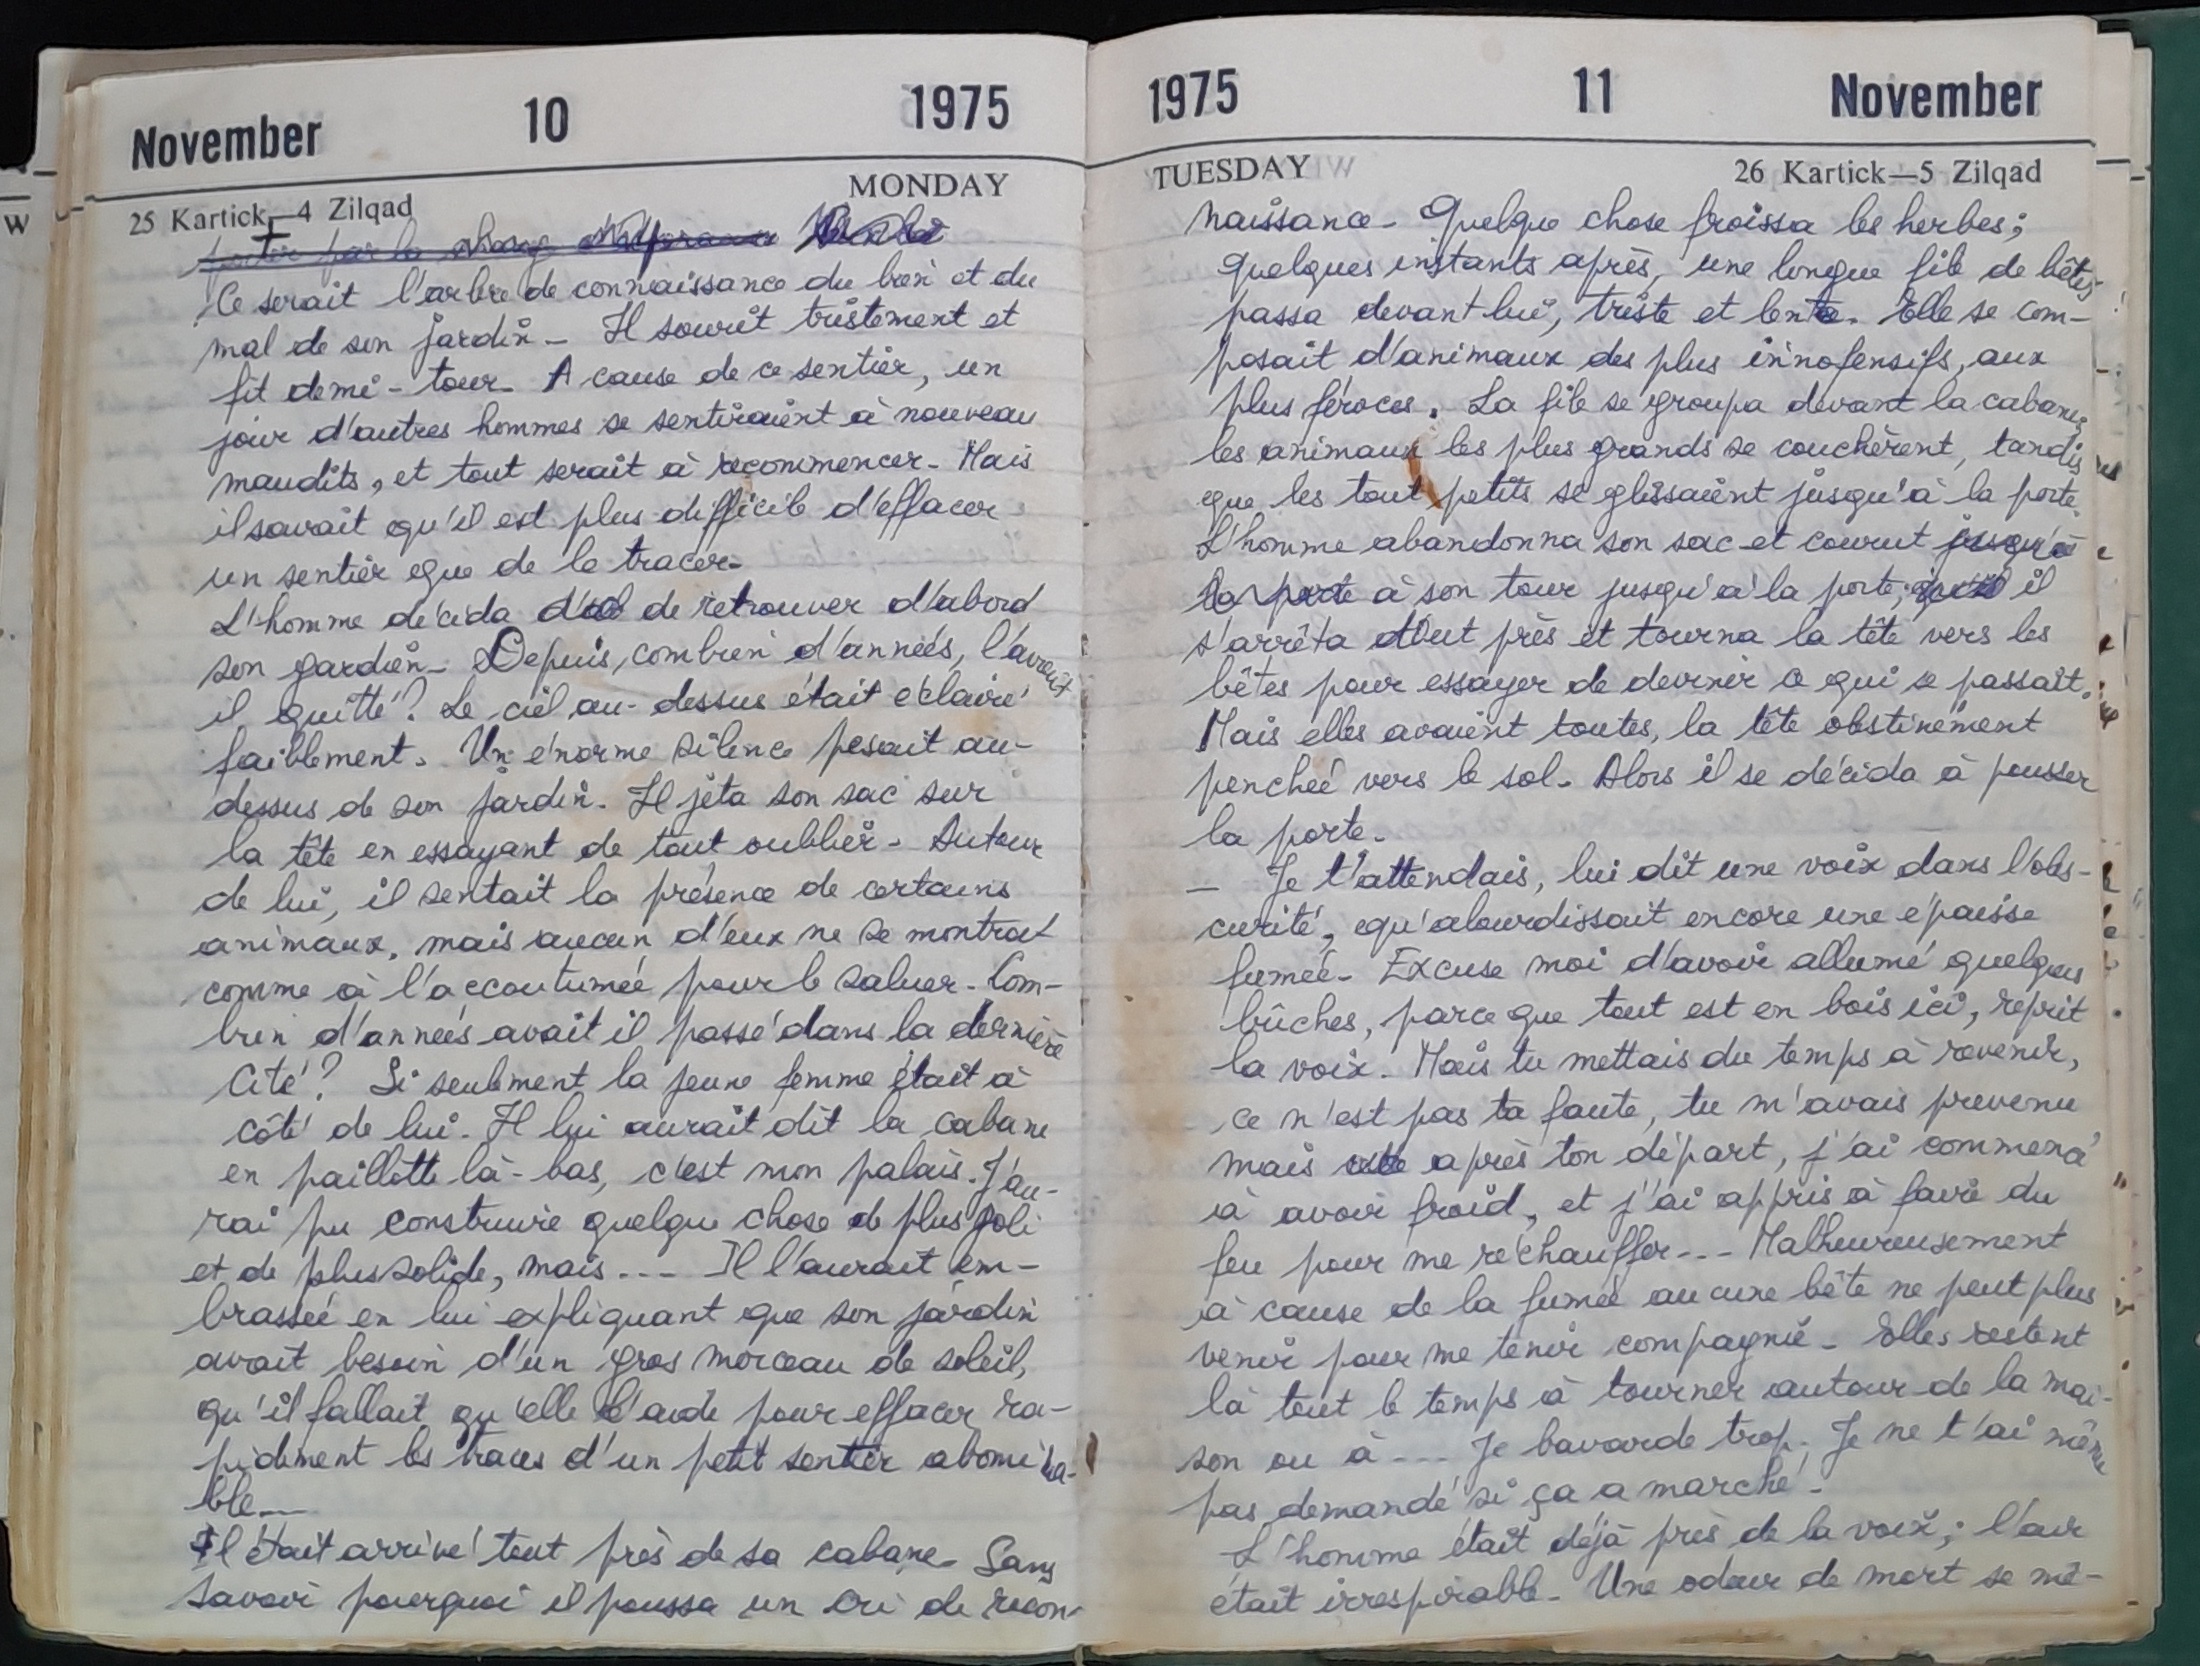 November 10 1975
25 Kartick—4 Zilqad MONDAY
par la
Ce serait l'arbre de connaissance du bien et du
mal de son jardin - Il sourit tristement et
fit demi-tour - A cause de ce sentier, un
jour d'autres hommes se sentiraient à nouveau
maudits, et tout serait à recommencer - Mais
il savait qu'il est plus difficile d'effacer
un sentier que de le tracer -
L'homme décida de retrouver d'abord
son gardien - Depuis, combien d'années, l'avait
il quitté? Le ciel au-dessus était éclairé
faiblement. Un énorme silence pesait au-
dessus de son jardin. Il jeta son sac sur
la tête en essayant de tout oublier - Autour
de lui, il sentait la présence de certains
animaux, mais aucun d'eux ne se montrait
comme à l'accoutumée pour le saluer - Com-
bien d'années avait il passé dans la dernière
Cité? Si seulement la jeune femme était à
côté de lui. Il lui aurait dit la cabane
en paillotte là-bas, c'est mon palais. J'au-
rai pu construire quelque chose de plus joli
et de plus solide, mais --- Il l'aurait em-
brassée en lui expliquant que son jardin
avait besoin d'un gros morceau de soleil,
qu'il fallait qu'elle l'aide pour effacer ra-
pidement les traces d'un petit sentier abomina-
ble---
Il était arrivé tout près de sa cabane - Sans
savoir pourquoi il poussa un cri de recon-
1975 11 November
TUESDAY 26 Kartick—5 Zilqad
naissance - Quelque chose froissa les herbes;
quelques instants après, une longue file de bêtes
passa devant lui, triste et lente. Elle se com-
posait d'animaux des plus innofensifs, aux
plus féroces. La file se groupa devant la cabane,
les animaux les plus grands se couchèrent, tandis
que les tout petits se glissaient jusqu'à la porte.
L'homme abandonna son sac et courut jusqu'à
la porte à son tour jusqu'à la porte; il
s'arrêta tout près et tourna la tête vers les
bêtes pour essayer de deviner ce qui se passait.
Mais elles avaient toutes, la tête obstinément
penchée vers le sol - Alors il se décida à pousser
la porte -
— Je t'attendais, lui dit une voix dans l'obs-
curité, qu'alourdissait encore une épaisse
fumée - Excuse moi d'avoir allumé quelques
bûches, parce que tout est en bois ici, reprit
la voix. Mais tu mettais du temps à revenir,
ce n'est pas ta faute, tu m'avais prevenu
mais après ton départ, j'ai commencé
à avoir froid, et j'ai appris à faire du
feu pour me réchauffer --- Malheureusement
à cause de la fumée aucune bête ne peut plus
venir pour me tenir compagnie - Elles restent
là tout le temps à tourner autour de la mai-
son ou à --- Je bavarde trop. Je ne t'ai même
pas demandé si ça a marché -
L'homme était déjà près de la voix; l'air
était irrespirable - Une odeur de mort se mê-